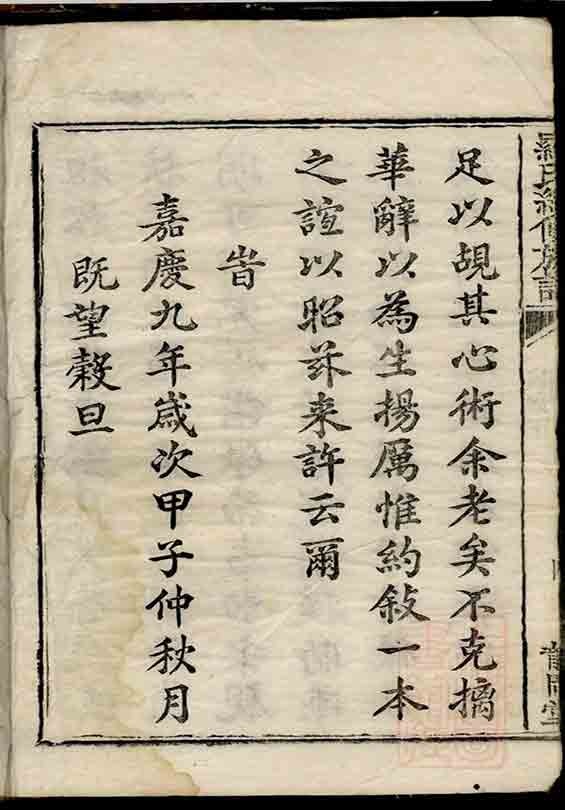 足以覘其心術余老矣不克摛
華辭以為生揚厲惟約敍一本
之誼以昭茲来許云爾
旹
嘉慶九年歲次甲子仲秋月
既望穀旦